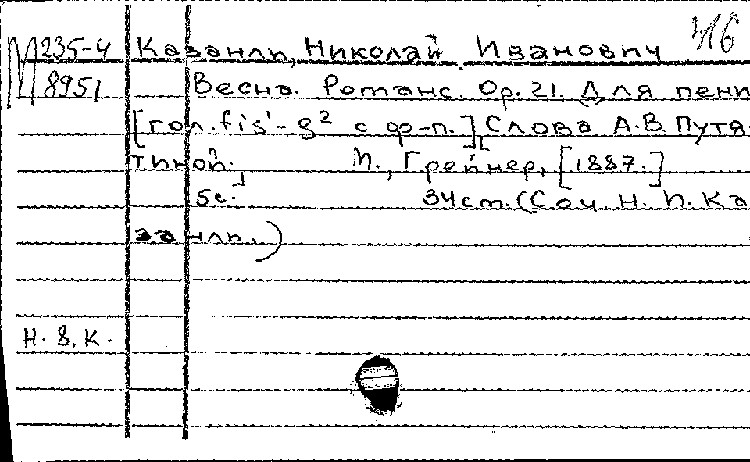 М 235-4 Казанли, Николай Иванович
8951 Весна. Романс. Op. 21. Для пени
[гол. fis'-g² с ф-п.] [Слова А.В. Путя-
тиной.] П., Грейнер, [1887.]
5с. 34ст. (Соч. Н. И. Ка
занли.)
Н. 8. К.